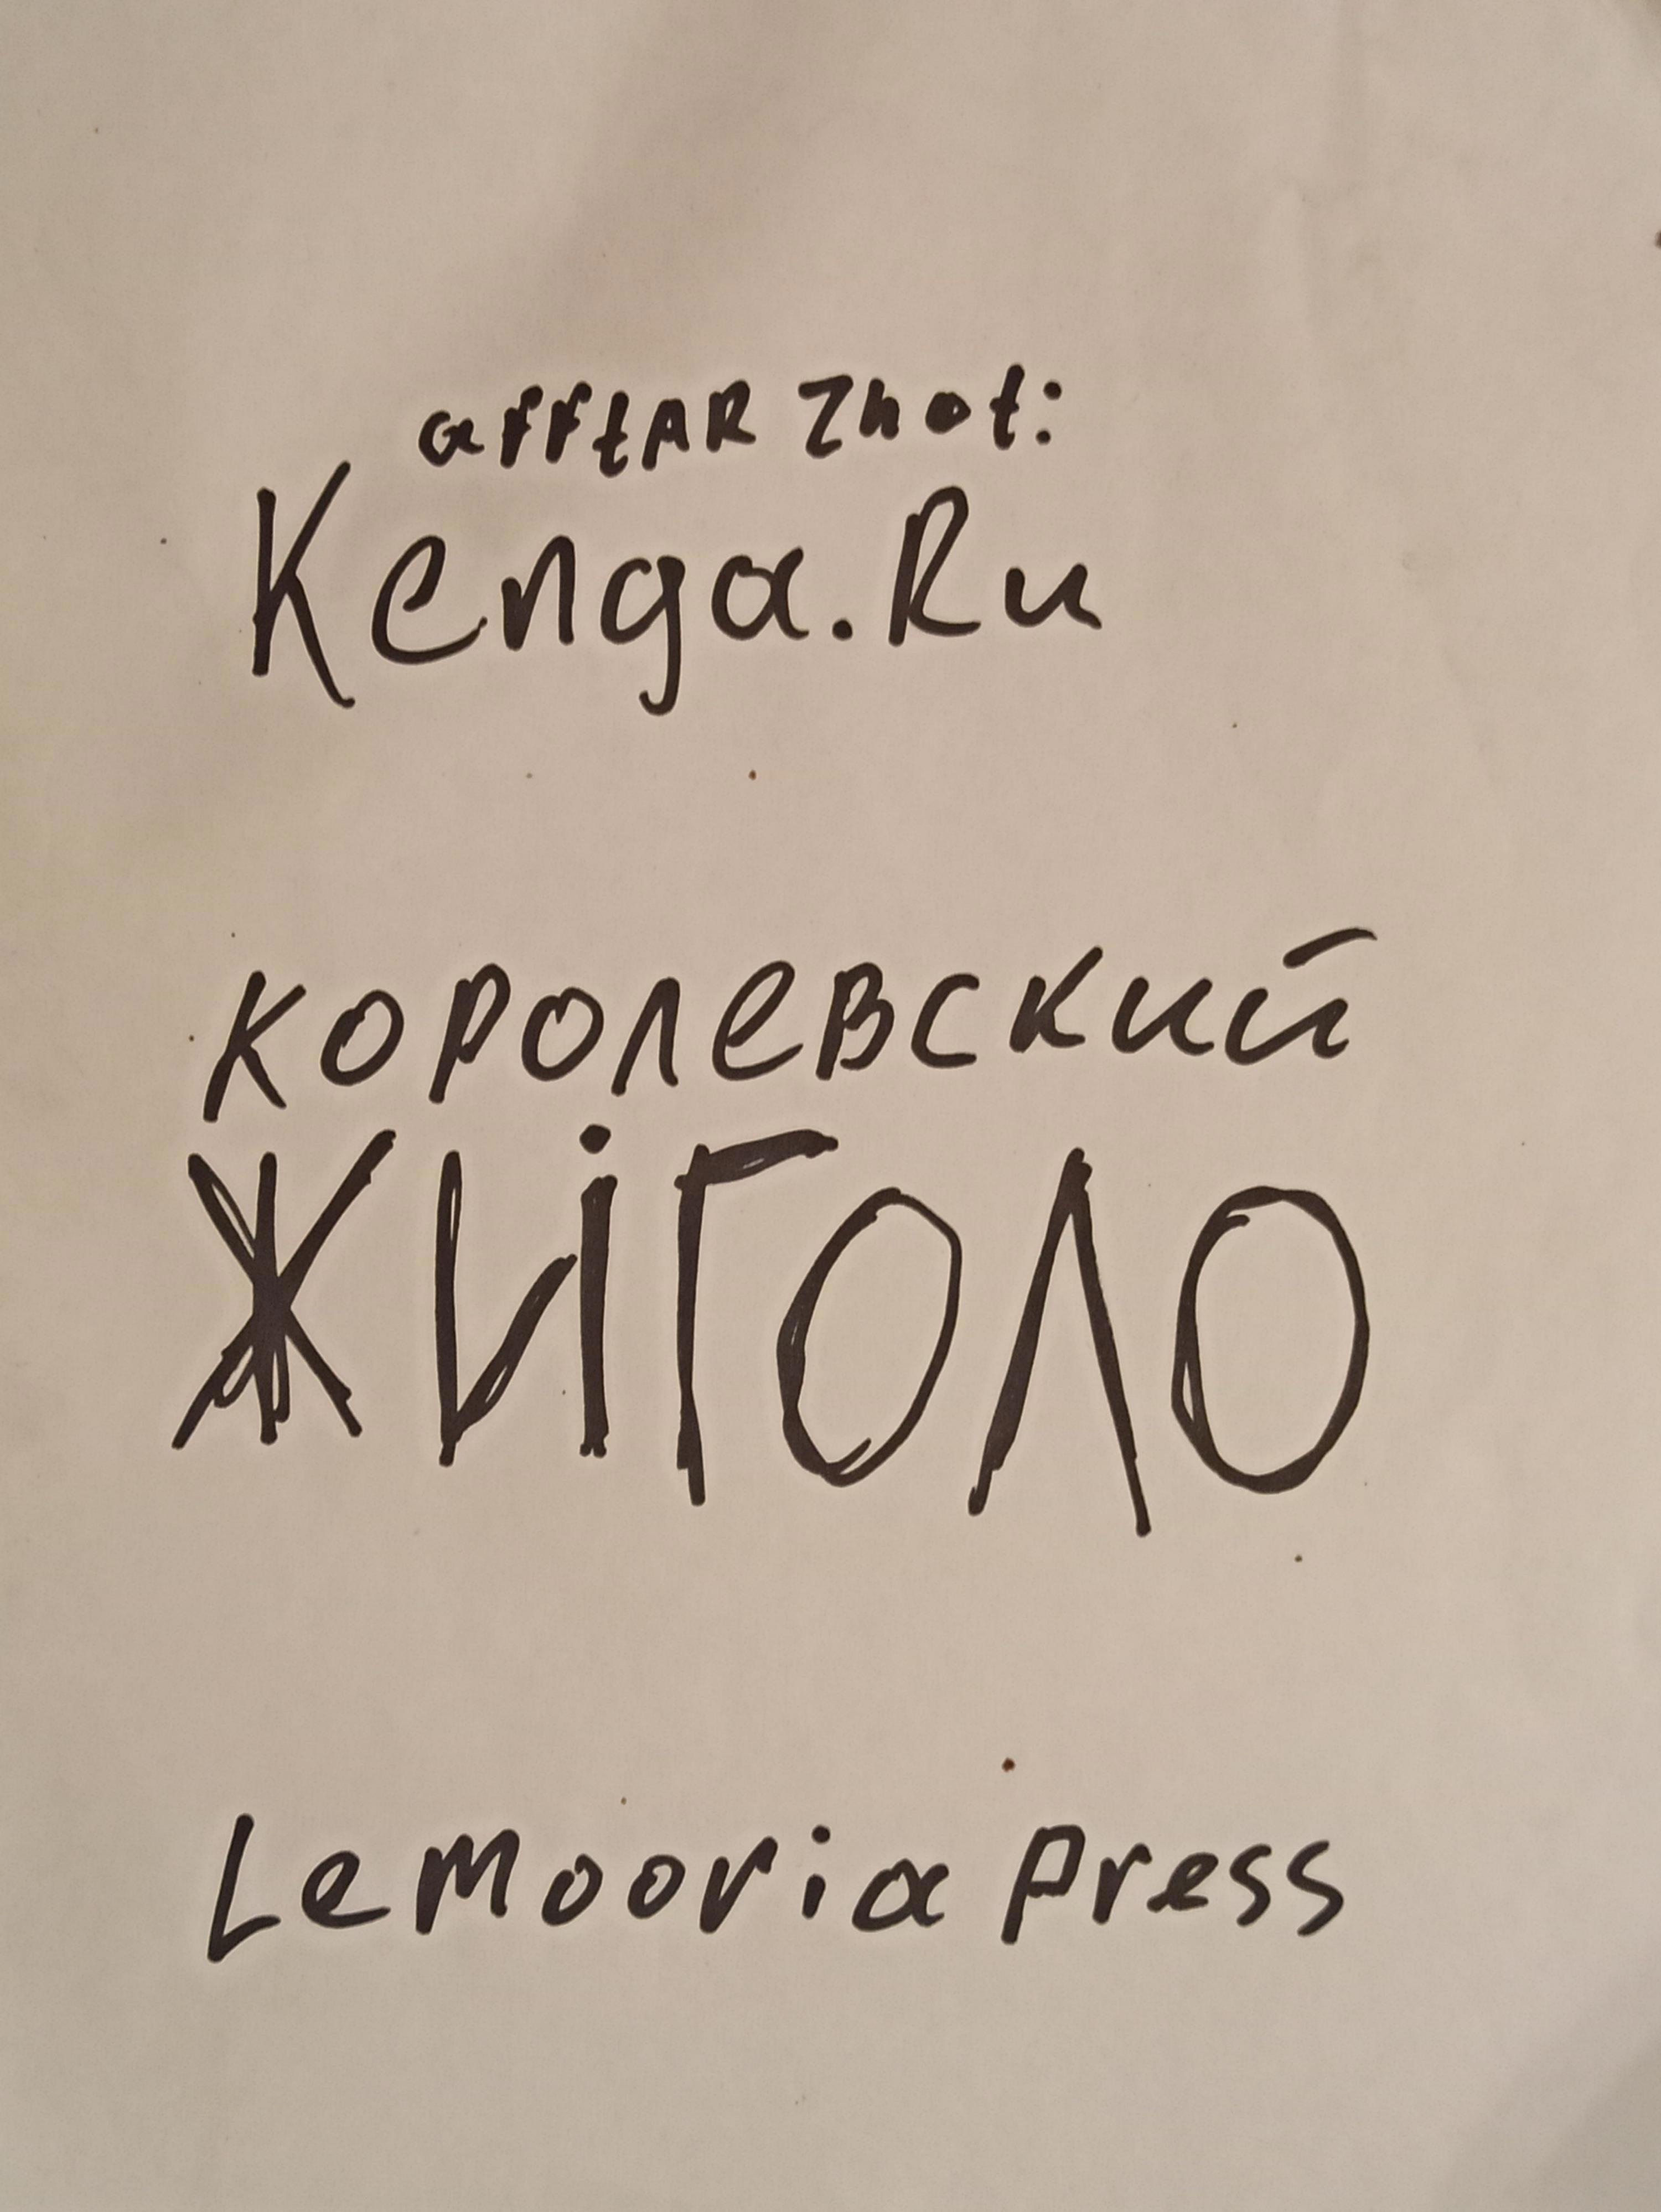 afftAR Zhot:
Kenga.Ru
королевский
ЖИГОЛО
LeMooria press